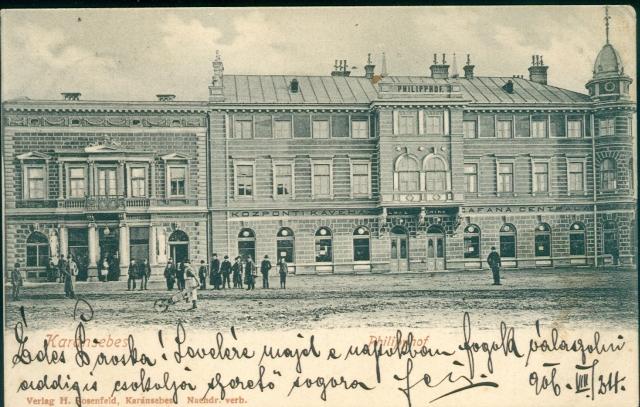 PHILIPPHOF.
KÖZPONTI KÁVEHÁ
CAFANA CENT
Karánsebes
Philipphof
Édes Böröska! Levelére majd e napokban fogok válaszolni
addig is csókolja szerető sógora
906. VII/24.
Verlag H. Rosenfeld, Karánsebes. Nachdr. verb.